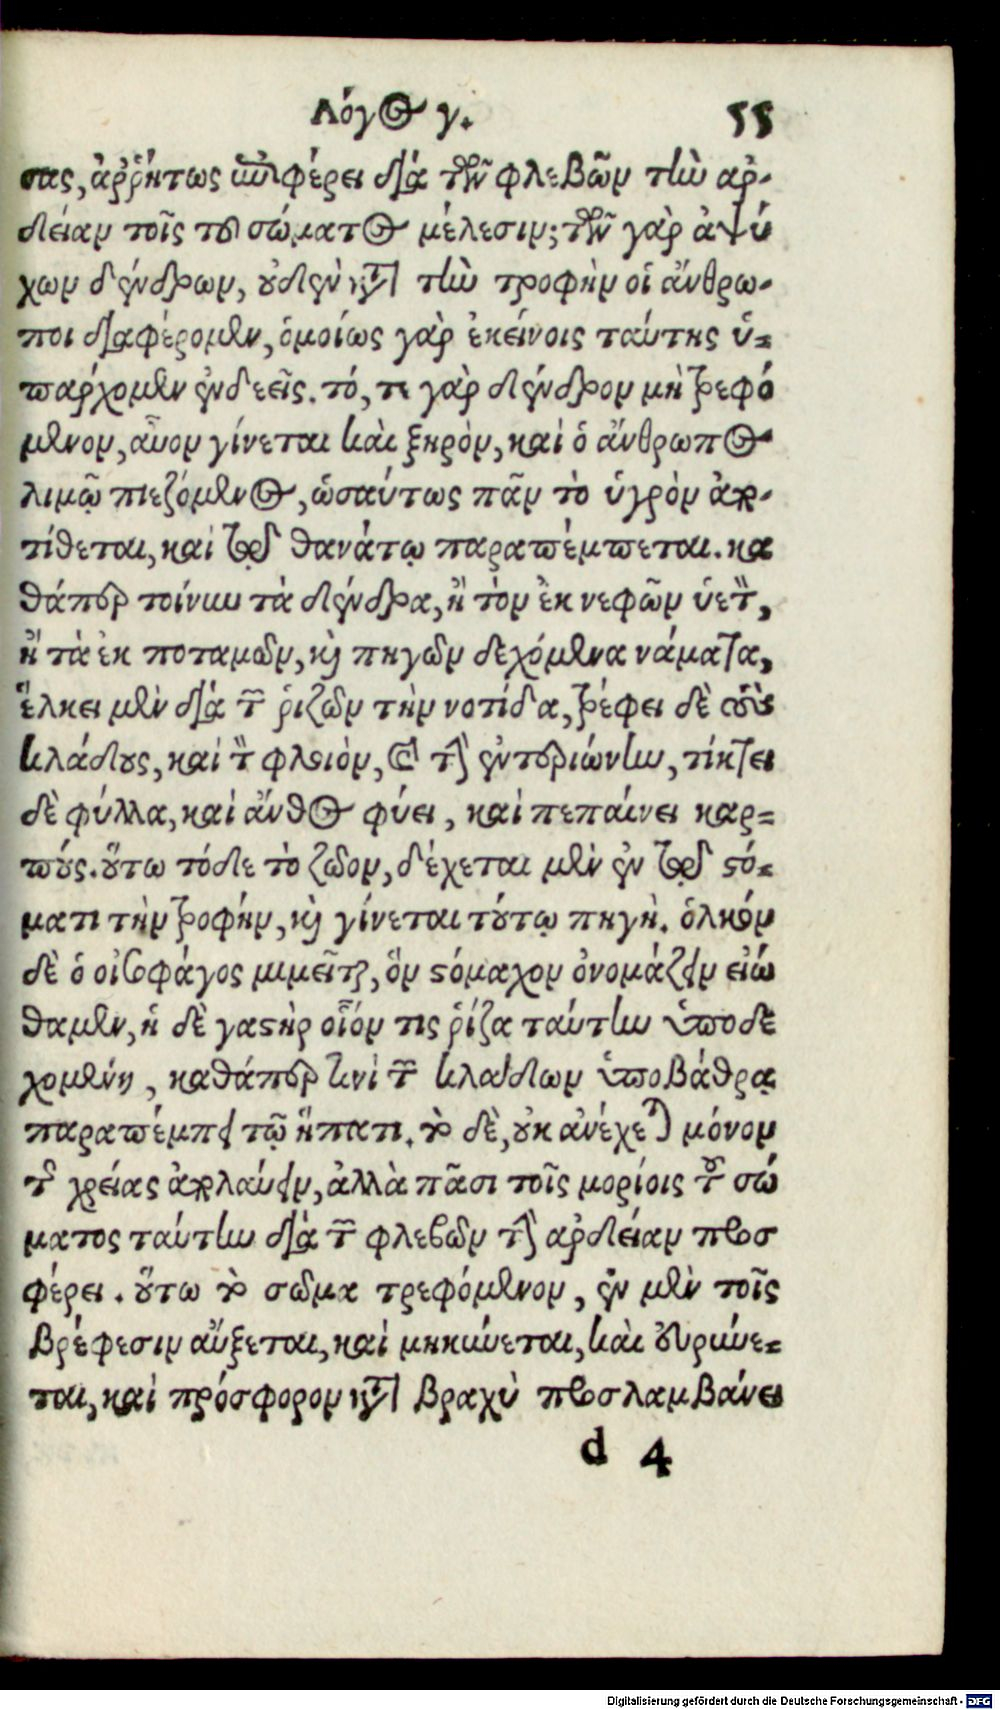 Λόγος γ. 55
σας, ἀῤῥήτως ἐπιφέρει διὰ τῶν φλεβῶν τὴν αρ-
δείαν τοῖς τοῦ σώματος μέλεσιν; τῶν γὰρ ἀψύ
χων δένδρων, οὐδὲν κατὰ τὴν τροφὴν οἱ ἄνθρω-
ποι διαφέρομεν, ὁμοίως γὰρ ἐκείνοις ταύτης ὑ-
παρχομεν ἐνδεεῖς. τό, τι γὰρ δένδρον μὴ τρεφό
μενον, αὖον γίνεται καὶ ξηρὸν, καὶ ὁ ἄνθρωπος
λιμῷ πιεζόμενος, ὡσαύτως πᾶν τὸ ὑγρὸν ἀπο-
τίθεται, καὶ τῷ θανάτῳ παραπέμπεται. κα
θάπερ τοίνυν τὰ δένδρα, ἢ τὸν ἐκ νεφῶν ὑετὸν,
ἢ τὰ ἐκ ποταμῶν, καὶ πηγῶν δεχόμενα νάματα,
ἕλκει μὲν διὰ τῶν ῥιζῶν τὴν νοτίδα, τρέφει δὲ τοὺς
κλάδους, καὶ τὸν φλοιὸν, καὶ τὴν ἐντεριώνην, τίκτει
δὲ φύλλα, καὶ ἄνθος φύει, καὶ πεπαίνει καρ-
πούς. οὕτω τόδε τὸ ζῶον, δέχεται μὲν ἐν τῷ στό-
ματι τὴν τροφήν, καὶ γίνεται τούτῳ πηγὴ. ὁλκὸν
δὲ ὁ οἰσοφάγος μιμεῖται, ὃν στόμαχον ὀνομάζειν εἰώ
θαμεν, ἡ δὲ γαστὴρ οἷόν τις ῥίζα ταύτην ὑποδε
χομένη, καθάπερ τινὶ τῶν κλάδων ὑποβάθρᾳ
παραπέμπει τῷ ἥπατι. τὸ δὲ, οὐκ ἀνέχεται μόνον
τῆς χρείας ἀπολαύειν, ἀλλὰ πᾶσι τοῖς μορίοις τοῦ σώ
ματος ταύτην διὰ τῶν φλεβῶν τὴν αρδείαν προσ
φέρει. οὕτω τὸ σῶμα τρεφόμενον, ἐν μὲν τοῖς
βρέφεσιν αὔξεται, καὶ μηκύνεται, καὶ εὐρύνε-
ται, καὶ πρόσφορον κατὰ βραχὺ προσλαμβάνει
d 4
Digitalisierung gefördert durch die Deutsche Forschungsgemeinschaft - DFG